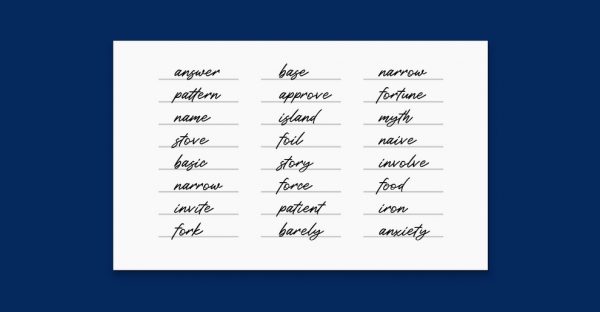 answer base narrow
pattern approve fortune
name island myth
stove foil naive
basic story involve
narrow force food
invite patient iron
fork barely anxiety